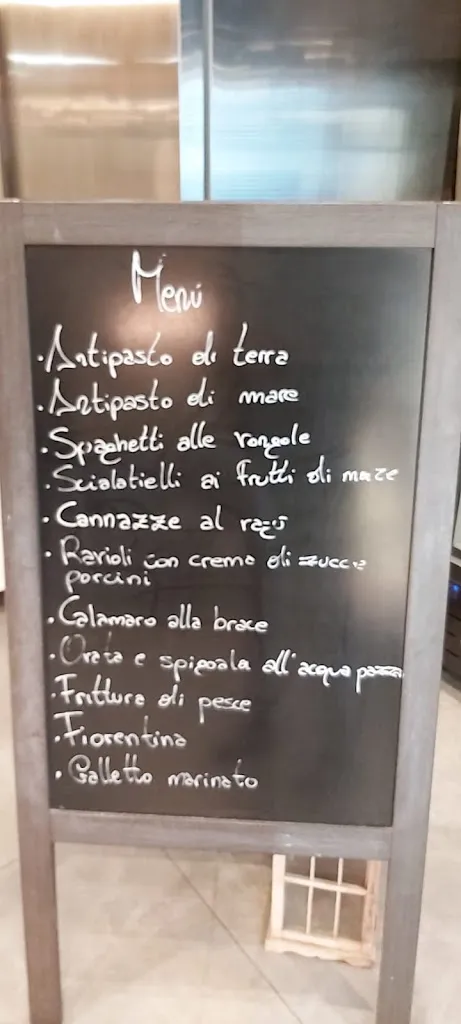 Menú
·Antipasto di terra
·Antipasto di mare
·Spaghetti alle vongole
·Scialatielli ai frutti di mare
·Cannazze al ragú
·Ravioli con crema di zucca
porcini
·Calamaro alla brace
·Orata e spigola all'acqua pazza
·Frittura di pesce
·Fiorentina
·Galletto marinato